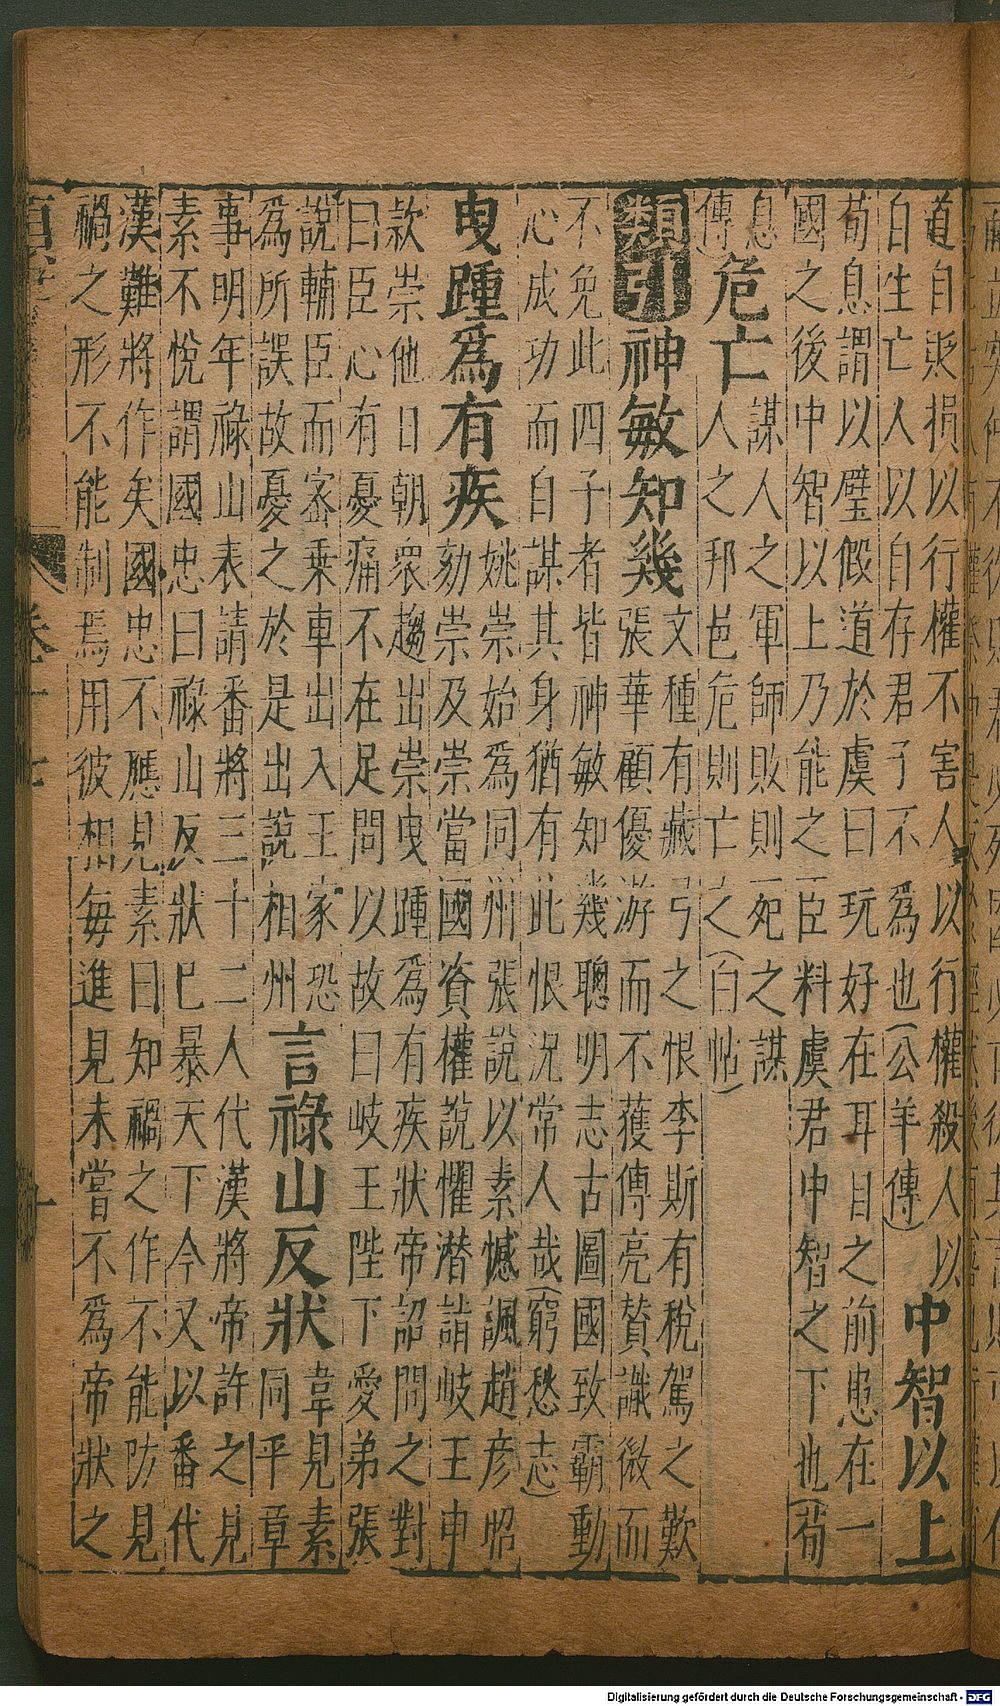 道自貶損以行權不害人以行權殺人以
自生亡人以自存君子不爲也(公羊傳)
中智以上
荀息謂以璧假道於虞曰玩好在耳目之前患在一
國之後中智以上乃能之臣料虞君中智之下也(荀
息
傳)
危亡
謀人之軍師敗則死之謀
人之邦邑危則亡之(白帖)
類引
神敏知幾
文種有藏弓之恨李斯有稅駕之歎
張華顧優游而不獲傅亮贊識微而
不免此四子者皆神敏知幾聰明志古圖國致霸動
心成功而自謀其身猶有此恨況常人哉(窮愁志)
曳踵爲有疾
姚崇始爲同州張說以素憾諷趙彦昭
劾崇及崇當國資權說懼潛詣岐王申
款崇他日朝衆趨出崇曳踵爲有疾狀帝詔問之對
曰臣心有憂痛不在足問以故曰岐王陛下愛弟張
說輔臣而密乗車出入王家恐
爲所誤故憂之於是出說相州
言祿山反狀
韋見素
同平章
事明年祿山表請番將三十二人代漢將帝許之見
素不悅謂國忠曰祿山反狀已暴天下今又以番代
漢難將作矣國忠不應見素曰知禍之作不能防見
禍之形不能制焉用彼相每進見未嘗不爲帝狀之
卷十七
Digitalisierung gefördert durch die Deutsche Forschungsgemeinschaft - DFG